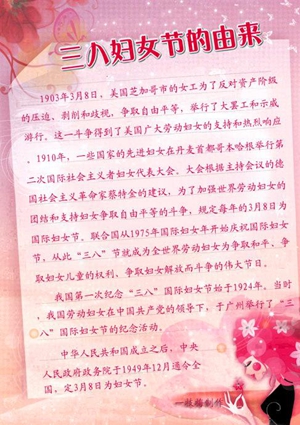 三八妇女节的由来
1903年3月8日，美国芝加哥市的女工为了反对资产阶级
的压迫、剥削和歧视，争取自由平等，举行了大罢工和示威
游行。这一斗争得到了美国广大劳动妇女的支持和热烈响应
。1910年，一些国家的先进妇女在丹麦首都哥本哈根举行第
二次国际社会主义者妇女代表大会。大会根据主持会议的德
国社会主义革命家蔡特金的建议，为了加强世界劳动妇女的
团结和支持妇女争取自由平等的斗争，规定每年的3月8日为
国际妇女节。联合国从1975年国际妇女年开始庆祝国际妇女
节。从此“三八”节就成为全世界劳动妇女为争取和平、争
取妇女儿童的权利、争取妇女解放而斗争的伟大节日。
我国第一次纪念“三八”国际妇女节始于1924年。当时
，我国劳动妇女在中国共产党的领导下，于广州举行了“三
八”国际妇女节的纪念活动。
中华人民共和国成立之后，中央
人民政府政务院于1949年12月通令全
国，定3月8日为妇女节。
一枝梅制作